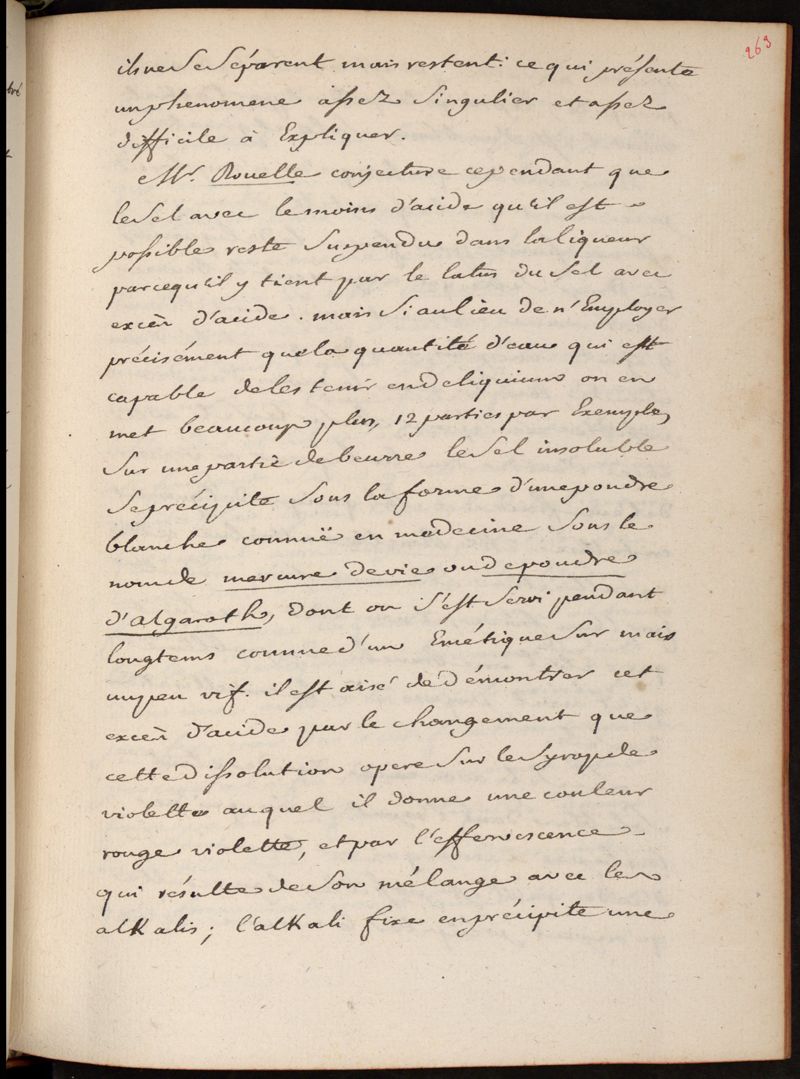 263
ils ne se séparent mais restent : ce qui présente
un phenomene assez singulier et assez
difficile à Expliquer.
Mr. Rouelle conjecture cependant que
le sel avec le moins d'acide qu'il est
possible reste suspendu dans la liqueur
parcequ'il y tient par le latus du sel avec
excès d'acide. mais si au lieu de n'Employer
précisément que la quantité d'eau qui est
capable de les tenir en deliquium on en
met beaucoup plus, 12 parties par Exemple,
sur une partie de beurre le sel insoluble
se précipite sous la forme d'une poudre
blanche connuë en medecine sous le
nom de mercure de vie ou de poudre
d'algaroth, dont on s'est servi pendant
longtems comme d'un Emétique sur mais
un peu vif. il est aisé de démontrer cet
excès d'acide par le changement que
cette dissolution opere sur le syrop de
violette auquel il donne une couleur
rouge violette, et par l'effervescence
qui résulte de son mélange avec les
alKalis ; l'alKali fixe en précipite une